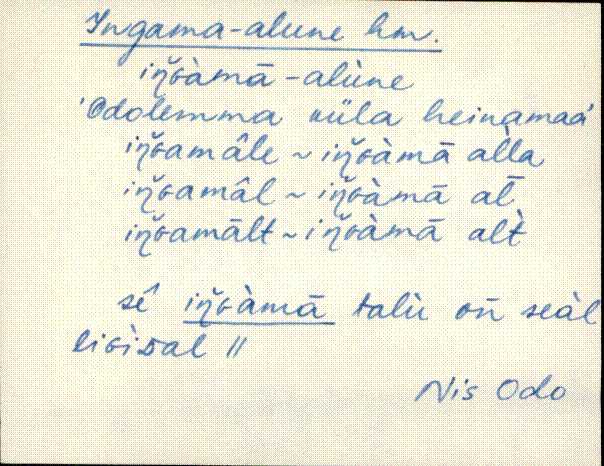 Ingama-alune hm.
iŋ̆ɢàmā-alùne
'Odolemma küla heinamaa'
iŋ̆ɢamâle ~ iŋ̆ɢàmā àlla
iŋ̆ɢamâl ~ iŋ̆ɢàmā al̄
iŋ̆ɢamālt ~ iŋ̆ɢàmā alt̀
sê iŋ̆ɢàmā talù on̄ seàl
liɢìᴅal //
Nis Odo